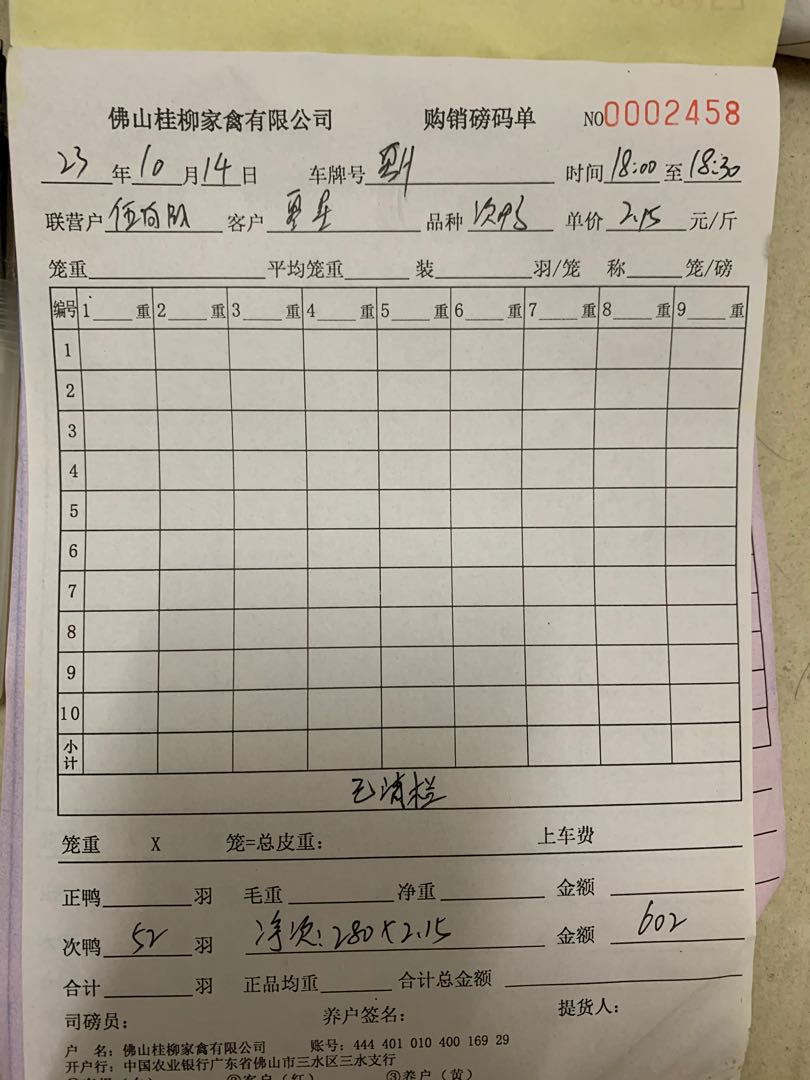 佛山桂柳家禽有限公司 购销磅码单 NO0002458
23年10月14日 车牌号 时间18:00至18:30
联营户 客户 品种次鸭 单价2.15元/斤
笼重 平均笼重 装 羽/笼 称 笼/磅
编号 1 重 2 重 3 重 4 重 5 重 6 重 7 重 8 重 9 重
1
2
3
4
5
6
7
8
9
10
小计
已清栏
笼重 X 笼=总皮重: 上车费
正鸭 羽 毛重 净重 金额
次鸭 52 羽 净次:280×2.15 金额 602
合计 羽 正品均重 合计总金额
司磅员: 养户签名: 提货人:
户 名: 佛山桂柳家禽有限公司 账号: 444 401 010 400 169 29
开户行: 中国农业银行广东省佛山市三水区三水支行
②客户(红) ③养户(黄)